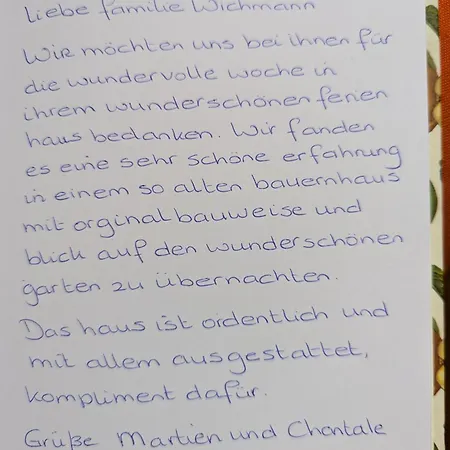 Liebe familie Wichmann
Wir möchten uns bei ihnen für
die wundervolle woche in
ihrem wunderschönen ferien
haus bedanken. Wir fanden
es eine sehr schöne erfahrung
in einem so alten bauernhaus
mit orginal bauweise und
blick auf den wunderschönen
garten zu übernachten.
Das haus ist ordentlich und
mit allem ausgestattet,
kompliment dafür.
Grüße Martien und Chantale